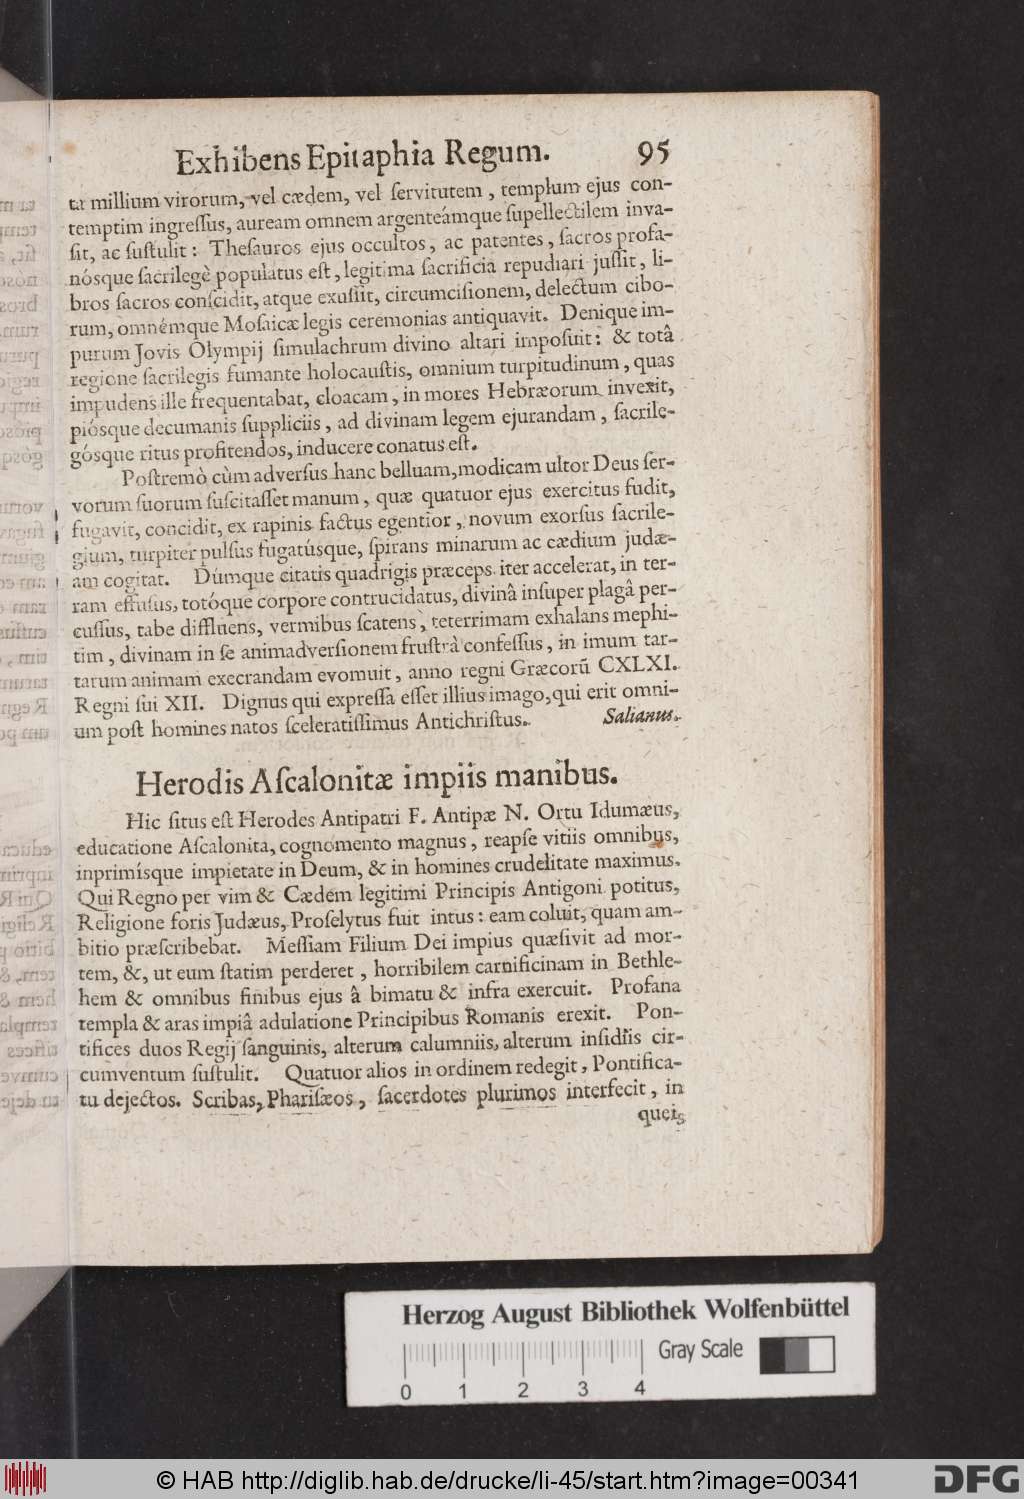 Exhibens Epitaphia Regum. 95
ta millium virorum, vel cædem, vel ſervitutem, templum ejus con-
temptim ingreſſus, auream omnem argenteámque ſupellectilem inva-
ſit, ac ſuſtulit: Theſauros ejus occultos, ac patentes, ſacros profa-
nósque ſacrilegè populatus eſt, legitima ſacrificia repudiari juſſit, li-
bros ſacros conſcidit, atque exuſſit, circumciſionem, delectum cibo-
rum, omnémque Moſaicæ legis ceremonias antiquavit. Denique im-
purum Jovis Olympij ſimulachrum divino altari impoſuit: & totâ
regione ſacrilegis fumante holocauſtis, omnium turpitudinum, quas
impudens ille frequentabat, cloacam, in mores Hebræorum invexit,
piósque decumanis ſuppliciis, ad divinam legem ejurandam, ſacrile-
gósque ritus profitendos, inducere conatus eſt.
Poſtremò cùm adverſus hanc belluam, modicam ultor Deus ſer-
vorum ſuorum ſuſcitaſſet manum, quæ quatuor ejus exercitus fudit,
fugavit, concidit, ex rapinis factus egentior, novum exorſus ſacrile-
gium, turpiter pulſus fugatúsque, ſpirans minarum ac cædium judæ-
am cogitat. Dúmque citatis quadrigis præceps iter accelerat, in ter-
ram effuſus, totóque corpore contrucidatus, divinâ inſuper plagâ per-
cuſſus, tabe diffluens, vermibus ſcatens, teterrimam exhalans mephi-
tim, divinam in ſe animadverſionem fruſtrà confeſſus, in imum tar-
tarum animam execrandam evomuit, anno regni Græcorũ CXLXI.
Regni ſui XII. Dignus qui expreſſa eſſet illius imago, qui erit omni-
um poſt homines natos ſceleratiſſimus Antichriſtus. Salianus.
Herodis Aſcalonitæ impiis manibus.
Hic ſitus eſt Herodes Antipatri F. Antipæ N. Ortu Idumæus,
educatione Aſcalonita, cognomento magnus, reapſe vitiis omnibus,
inprimísque impietate in Deum, & in homines crudelitate maximus.
Qui Regno per vim & Cædem legitimi Principis Antigoni potitus,
Religione foris Judæus, Proſelytus fuit intus: eam coluit, quam am-
bitio præſcribebat. Meſſiam Filium Dei impius quæſivit ad mor-
tem, &, ut eum ſtatim perderet, horribilem carnificinam in Bethle-
hem & omnibus finibus ejus â bimatu & infra exercuit. Profana
templa & aras impiâ adulatione Principibus Romanis erexit. Pon-
tifices duos Regij ſanguinis, alterum calumniis, alterum inſidiis cir-
cumventum ſuſtulit. Quatuor alios in ordinem redegit, Pontifica-
tu dejectos. Scribas, Phariſæos, ſacerdotes plurimos interfecit, in
queis
Herzog August Bibliothek Wolfenbüttel
Gray Scale
0 1 2 3 4
© HAB http://diglib.hab.de/drucke/li-45/start.htm?image=00341
DFG